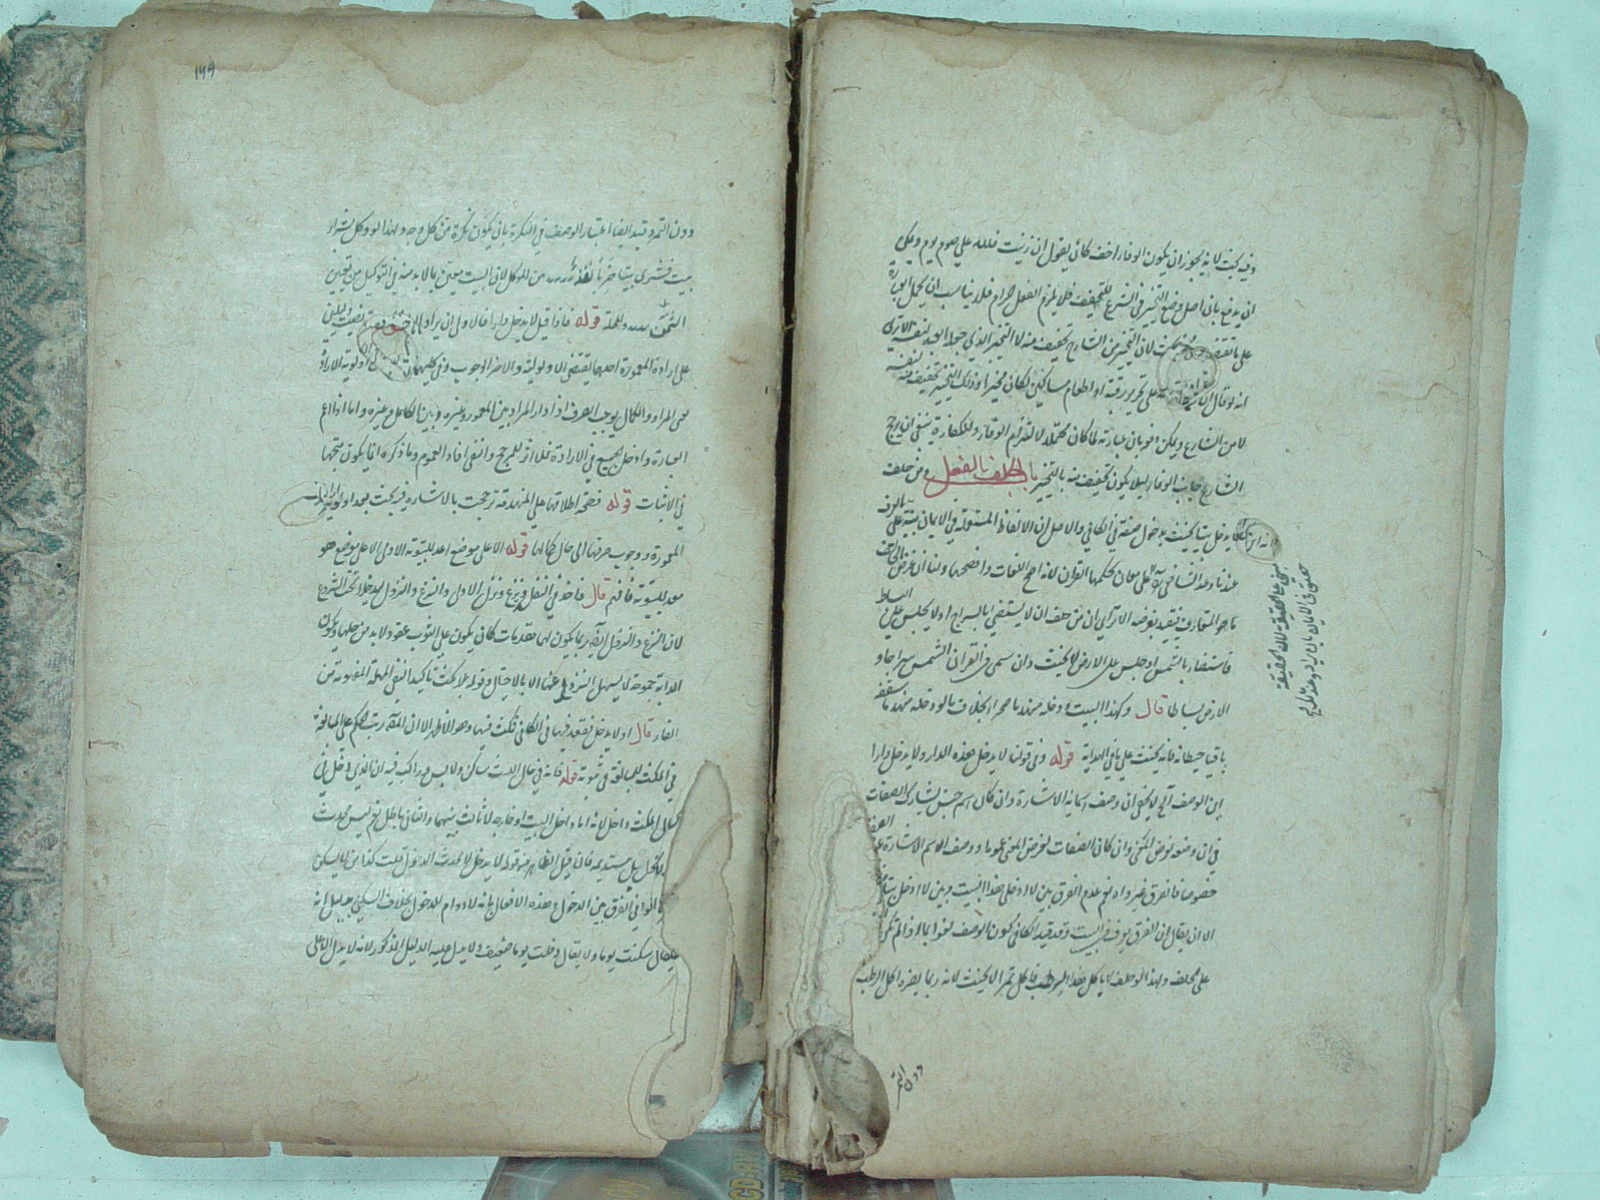 وفيه بحث لانه يجوز ان يكون الوفاء اخف كان يقول ان زنيت فلله علي صوم يوم ويمكن
ان يدفع بان اصل وضع التخيير في الشرع للتخفيف فلا يلزم الفعل حرام فلا يناسب ان يحمل
على ما بحث لان التخيير من الشارع تخفيف منه لا التخيير الذي جعله العبد لنفسه الا ترى
انه لو قال ان فعليه تحرير رقبة او اطعام مساكين لكان مخيرا وذلك التخيير تخفيف من نفسه
لا من الشارع ويمكن دفعه بان عبارته لما كان محتملا لالتزام الوفاء وللكفارة ينبغي ان يرجح
الشارع جانب الوفاء ليلا يكون تخفيف منه بالتخيير باب الحلف بالفعل ومن حلف
لا يدخل بيتا يحنث بدخول صفة في الكافي والاصل ان الالفاظ المستعملة في الايمان مبنية على العرف
عندنا وعند الشافعي على معان تحكمها القران لانه اصح اللغات وافصحها ولنا ان غرض الحالف
ما هو المتعارف فيتقيد بغرضه الا ترى ان من حلف ان لا يستضيء بالسراج او لا يجلس على البساط
فاستضاء بالشمس او جلس على الارض لا يحنث وان سمى في القران الشمس سراجا و
الارض بساطا قال وكهذا البيت ودخله منهدما صحراء بخلاف ما لو دخله منهدما سقفه
باقيا حيطانه فانه يحنث على ما في الهداية قوله وفي قولنا لا يدخل هذه الدار ولا يدخل دارا
ان الوصف آه لا يخفى ان وصف اسمائه الاشارة وان كان اسم جنس يشارك الصفات
في ان وضعه لغرض المعنى وان كان الصفات لغرض المعنى عموما ووصف الاسم الاشارة
خصوصا فالفرق غير واه نعم عدم الفرق بين لا ادخل هذا البيت وبين لا ادخل بيتا
الا ان يقال ان الفرق يعرف في البيت وقد قيد الكافي كون الوصف لغوا بما اذا لم يكن
على الحلف ولهذا لو حلف لا ياكل هذا الرطب فاكل تمرا لا يحنث لانه ربما يضره اكل الرطب
دون التمر
مبنى على الحقيقة لان الحقيقة
حقيق في الايمان بان يراد وعند مالك
١٩٩
دون التمر وقيد ايضا اعتبار الوصف في النكرة بان يكون نكرة من كل وجه ولهذا لو وكل بشراء
بيت فشرى بيتا خربا نفذ من الموكل لان البيت معين بما لابد منه في التوكيل من تعيين
الثمن والمحلة قوله فاذا قيل لا يدخل دارا فالاولى ان يراد
على ارادة المعمورة احدهما يقتضي الاولوية والاخر الوجوب وفي كليهما اولوية الارادة
هي المراد والكمال يوجب الصرف اذا دار المراد بين المعمور وغيره وبين الكامل وغيره واما اذا اعم
العبارة وادخل الجميع في الارادة فلا اثر للمرجح وانفى افاد العموم وما ذكره انما يكون متجها
في الاثبات قوله فصحة اطلاقها على المنهدمة ترجحت بالاشارة فيه بحث
المعمورة ووجوب صرفها الى حال كمالها قوله الاعلى موضع اعد للبيتوتة الاولى الا على موضع هو
معد للبيتوتة فافهم قال فاخذ في النقل ونزع ونزل الاول والنزع والنزول لم يدخلا تحت الشروع
لان النزع والنزول ايضا ربما يكون لهما مقدمات كان يكون على الثوب عقود لابد من حلها ويكون
الدابة جموحة لا يسهل النزول عنها الا بالاحتيال وقوله بلا مكث تاكيد النفي المهلة المفهومة من
الفاء قال او لا يدخل فقعد فيها في الكافي فمكث فيها وهو الاظهر الا ان المص رتب الحكم على المبالغة
في المكث للمبالغة في ثبوته قوله فانه في حال المكث ساكن ولابس وراكب فيه ان الذي دخل في
حال المكث داخل لانه اما داخل البيت او خارجه لا ثالث بينهما والثاني باطل نعم ليس يحدث
الدخول بل مستديمه فان قيل الظاهر من قوله لا يدخل لا يحدث الدخول قلت كذا من لا يسكن
الوافي الفرق بين الدخول وهذه الافعال بانه لا دوام للدخول بخلاف السكنى بدليل انه
يقال سكنت يوما ولا يقال دخلت يوما ضعيف ولا يدل عليه الدليل المذكور لانه لا يدل الا على